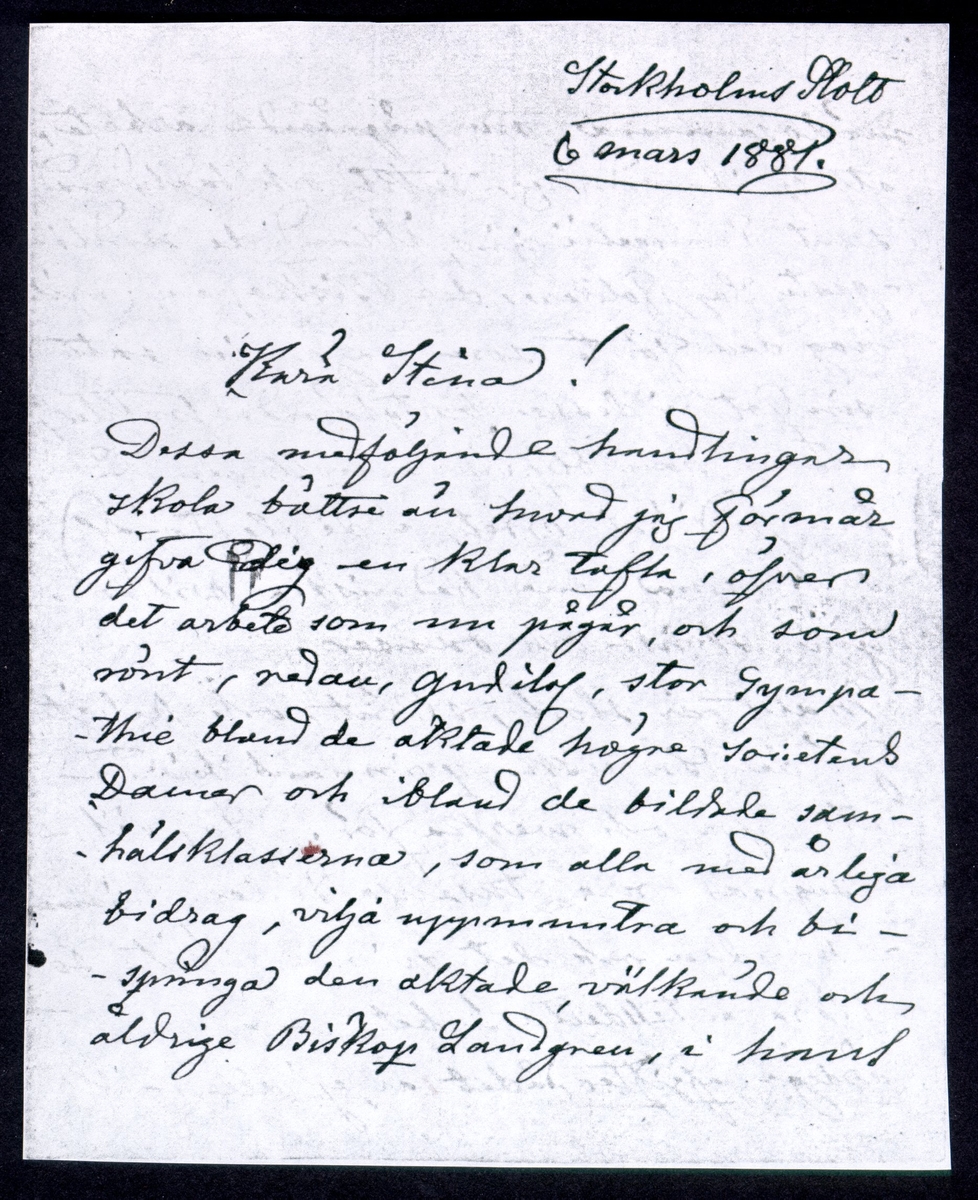 Stockholms Slott
6 mars 1881.
Kära Stina !
Dessa medföljande handlingar
skola bättre än hvad jag förmår
gifva dig en klar tafla, öfver
det arbete som nu pågår, och som
rönt, redan, gudilof, stor sympa-
-thie bland de aktade högre societens
Damer och ibland de bildade sam-
-hälsklasserna, som alla med årliga
bidrag, vilja uppmuntra och bi-
-springa den aktade, välkände och
åldrige Biskop Landgren, i hans